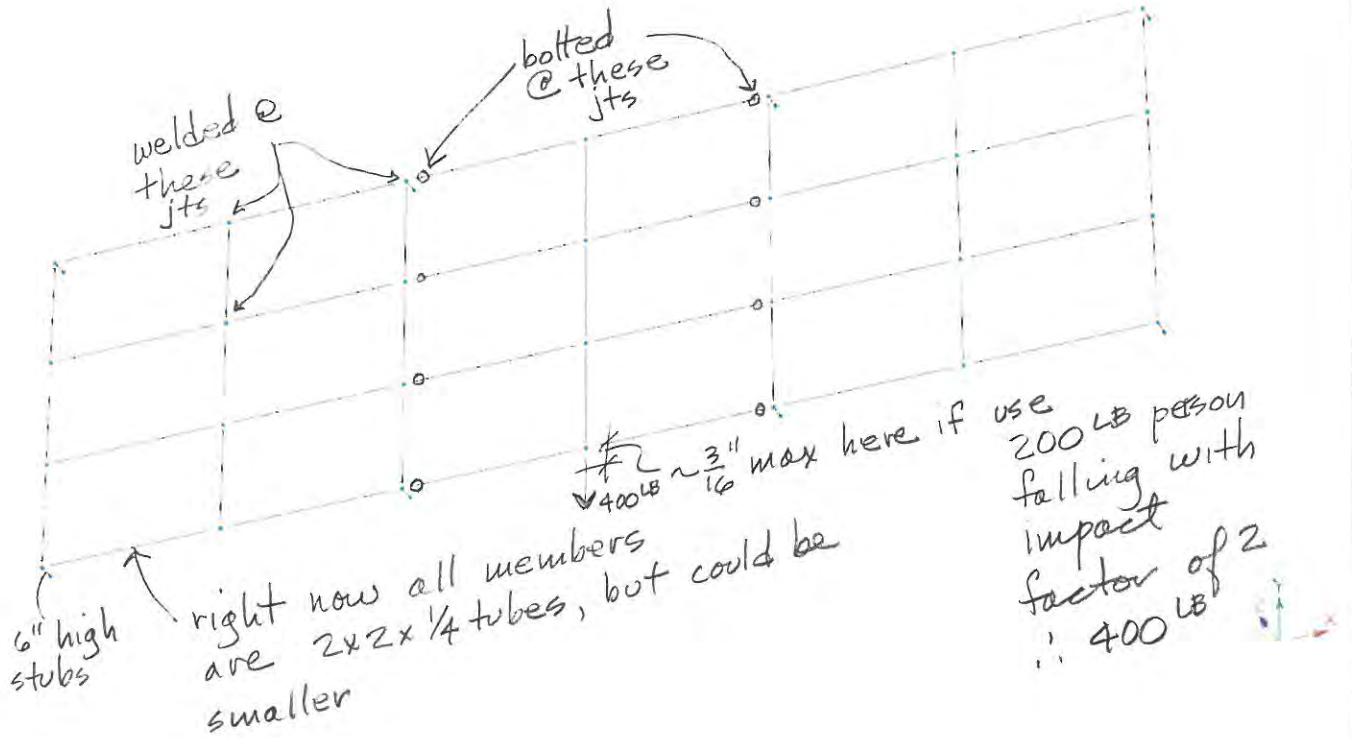 bolted
@ these
jts
welded @
these
jts
400 LB ~ 3/16" max here if use
200 LB person
falling with
impact
factor of 2
∴ 400 LB
6" high
stubs
right now all members
are 2x2x1/4 tubes, but could be
smaller
Y
X